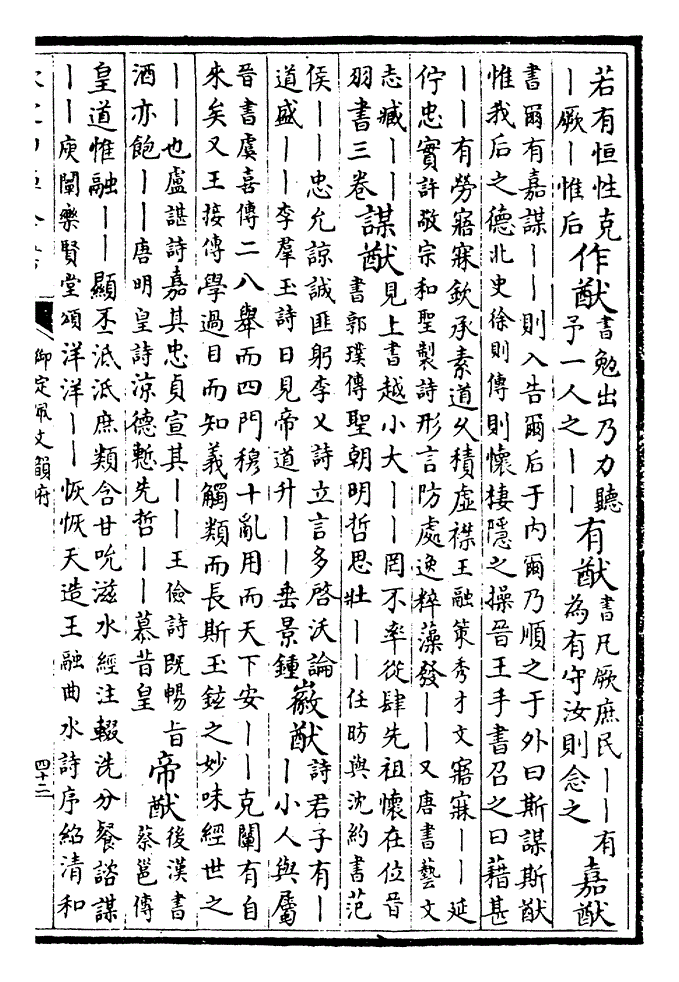 若有恒性克
丨厥丨惟后
作猷
書勉出乃力聽
予一人之丨丨
有猷
書凡厥庶民丨丨有
為有守汝則念之
嘉猷
書爾有嘉謀丨丨則入告爾后于內爾乃順之于外曰斯謀斯猷
惟我后之德北史徐則傳則懷棲隱之操晉王手書召之曰藉甚
丨丨有勞寤寐欽承素道久積虛襟王融策秀才文寤寐丨丨延
佇忠實許敬宗和聖製詩形言防處逸粹藻發丨丨又唐書藝文
志臧丨丨
羽書三卷
謀猷
見上書越小大丨丨罔不率從肆先祖懷在位晉
書郭璞傳聖朝明哲思壯丨丨任昉與沈約書范
侯丨丨忠允諒誠匪躬李乂詩立言多啓沃論
道盛丨丨李羣玉詩日見帝道升丨丨垂景鍾
徽猷
詩君子有丨
丨小人與屬
晉書虞喜傳二八舉而四門穆十亂用而天下安丨丨克闡有自
來矣又王接傳學過目而知義觸類而長斯玉鉉之妙味經世之
丨丨也盧諶詩嘉其忠貞宣其丨丨王儉詩既暢旨
酒亦飽丨丨唐明皇詩涼德慙先哲丨丨慕昔皇
帝猷
後漢書
蔡邕傳
皇道惟融丨丨顯丕泜泜庶類含甘吮滋水經注輟洗分餐諮謀
丨丨庾闡樂賢堂頌洋洋丨丨恢恢天造王融曲水詩序紹清和
御定佩文韻府
四十二